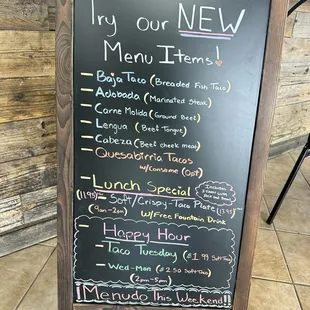 Try our NEW
Menu Items!
- Baja Taco (Breaded Fish Taco)
- Adobada (Marinated Steak)
- Carne Molida (Ground Beef)
- Lengua (Beef Tongue)
- Cabeza (Beef cheek meat)
- Quesabirria Tacos
w/consome (5pt)
- Lunch Special
(11.95) - Soft/Crispy-Taco Plate
(9am-2pm) w/Free Fountain Drink
- Happy Hour
- Taco Tuesday ($1.99 Soft Taco)
- Wed-Mon ($2.50 Soft Taco)
(2pm-5pm)
¡Menudo This Weekend!!